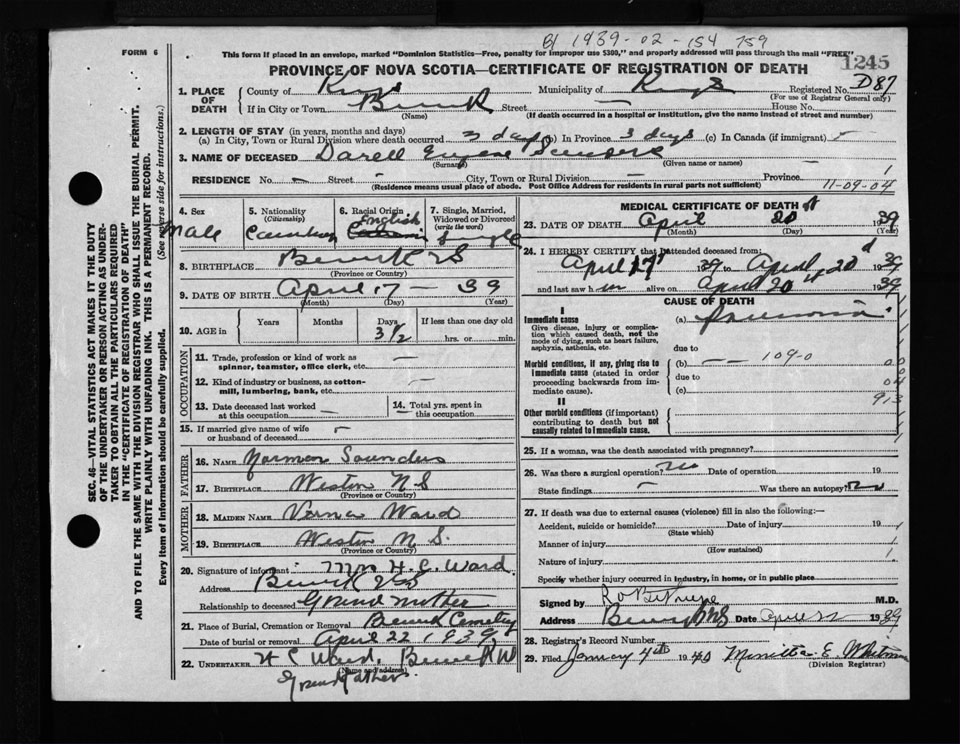 B/ 1939-02-154 759
FORM 6
This form if placed in an envelope, marked "Dominion Statistics—Free, penalty for improper use $300," and properly addressed will pass through the mail "FREE"
1245
PROVINCE OF NOVA SCOTIA—CERTIFICATE OF REGISTRATION OF DEATH
1. PLACE OF DEATH County of Kings Municipality of Kings Registered No. D87
(For use of Registrar General only)
If in City or Town Berwick Street — House No.
(Name) (If death occurred in a hospital or institution, give the name instead of street and number)
2. LENGTH OF STAY (in years, months and days)
(a) In City, Town or Rural Division where death occurred 3 days (b) In Province 3 days (c) In Canada (if immigrant) -
3. NAME OF DECEASED Darell Eugene Saunders
(Surname) (Given name or names)
RESIDENCE No. - Street - City, Town or Rural Division — Province — 1
(Residence means usual place of abode. Post Office Address for residents in rural parts not sufficient) 11-09-04
4. Sex Male
5. Nationality (Citizenship) Canadian
6. Racial Origin English
7. Single, Married, Widowed or Divorced (write the word) Single
8. BIRTHPLACE Berwick NS
(Province or Country)
9. DATE OF BIRTH April 17 — 39
(Month) (Day) (Year)
10. AGE in Years Months Days If less than one day old
3 1/2 hrs. or min.
OCCUPATION
11. Trade, profession or kind of work as spinner, teamster, office clerk, etc. —
12. Kind of industry or business, as cotton-mill, lumbering, bank, etc. —
13. Date deceased last worked at this occupation —
14. Total yrs. spent in this occupation —
15. If married give name of wife or husband of deceased -
FATHER
16. NAME Norman Saunders
17. BIRTHPLACE Weston N S
(Province or Country)
MOTHER
18. MAIDEN NAME Verna Ward
19. BIRTHPLACE Weston N S.
(Province or Country)
20. Signature of informant Mrs H. C. Ward.
Address Berwick NS
Relationship to deceased Grand mother
21. Place of Burial, Cremation or Removal Berwick Cemetery
Date of burial or removal April 22 1939
22. UNDERTAKER H C Ward, Berwick
(Name and address)
Grandfather
MEDICAL CERTIFICATE OF DEATH
23. DATE OF DEATH April 20 1939
(Month) (Day) (Year)
24. I HEREBY CERTIFY that I attended deceased from:
April 17 39 to April 20 1939
and last saw him alive on April 20 1939
CAUSE OF DEATH
I
Immediate cause
Give disease, injury or complication which caused death, not the mode of dying, such as heart failure, asphyxia, asthenia, etc.
(a) Pneumonia
due to
Morbid conditions, if any, giving rise to immediate cause (stated in order proceeding backwards from immediate cause).
(b) — — 109-0
due to
(c)
04
913
II
Other morbid conditions (if important) contributing to death but not causally related to immediate cause.
25. If a woman, was the death associated with pregnancy?
26. Was there a surgical operation? no Date of operation 19
State findings - Was there an autopsy? no
27. If death was due to external causes (violence) fill in also the following:—
Accident, suicide or homicide? Date of injury 19
(State which)
Manner of injury
(How sustained)
Nature of injury
Specify whether injury occurred in industry, in home, or in public place
Signed by M.D.
Address Berwick NS Date April 22 1939
28. Registrar's Record Number
29. Filed January 4th 1940 Minetta E. Whitman
(Division Registrar)
SEC. 46—VITAL STATISTICS ACT MAKES IT THE DUTY
OF THE UNDERTAKER OR PERSON ACTING AS UNDER-
TAKER TO OBTAIN ALL THE PARTICULARS REQUIRED
IN THE "CERTIFICATE OF REGISTRATION OF DEATH"
AND TO FILE THE SAME WITH THE DIVISION REGISTRAR WHO SHALL ISSUE THE BURIAL PERMIT.
WRITE PLAINLY WITH UNFADING INK. THIS IS A PERMANENT RECORD.
Every item of information should be carefully supplied. (See reverse side for instructions.)